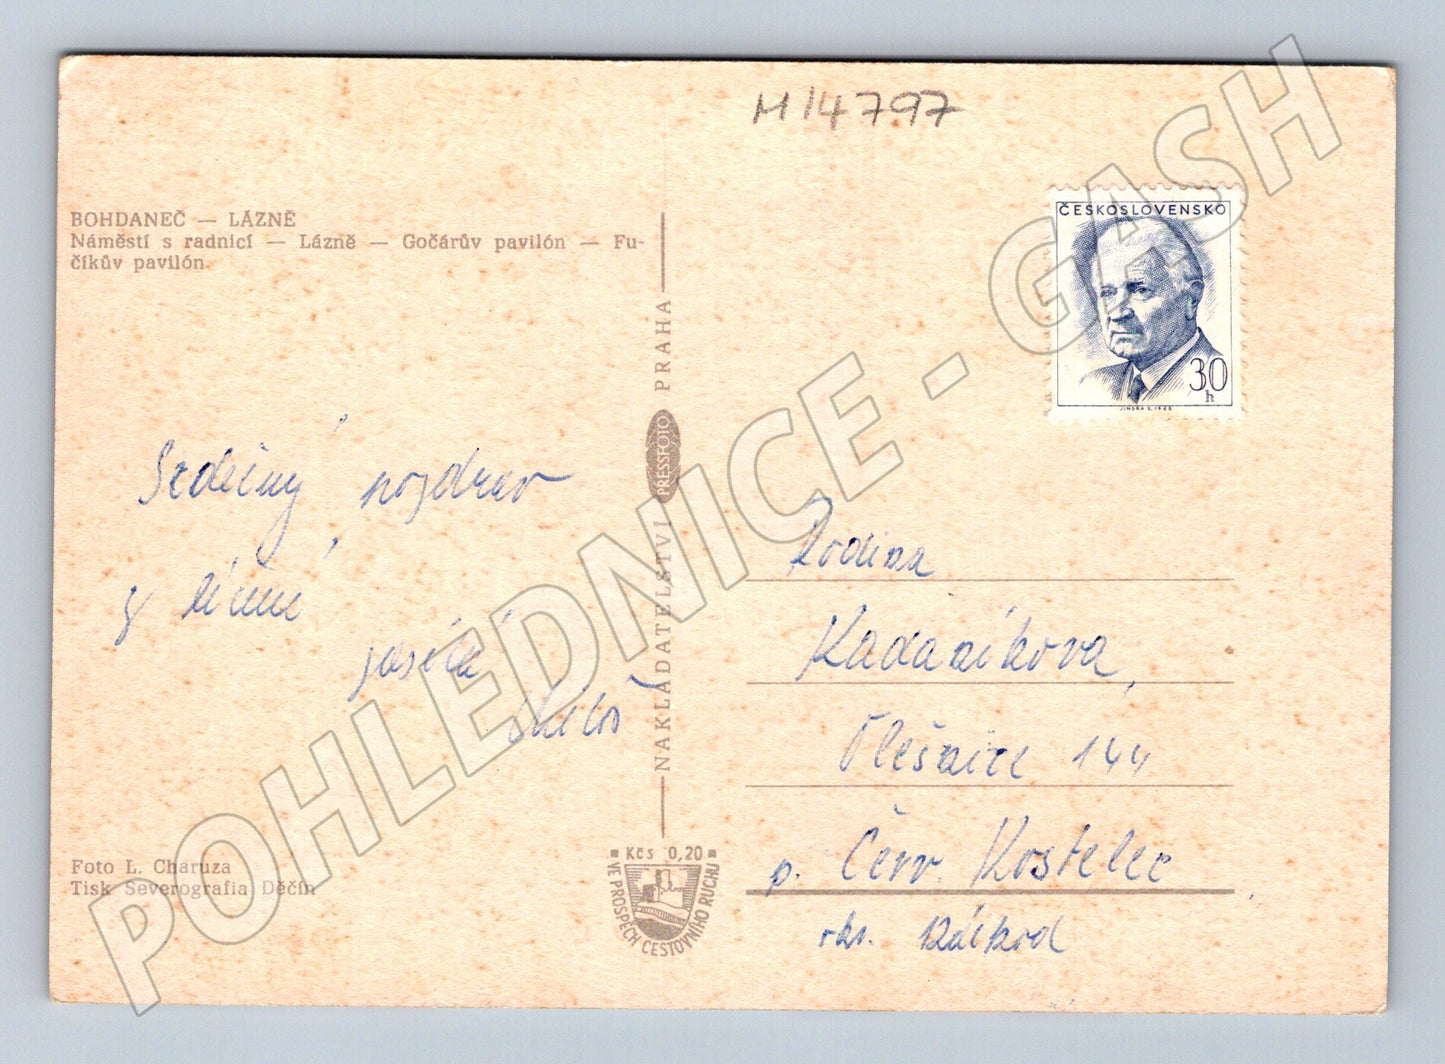 H 14797
BOHDANEČ — LÁZNĚ
Náměstí s radnicí — Lázně — Gočárův pavilón — Fu-
číkův pavilón.
ČESKOSLOVENSKO
30
h
JINDRA S. 1968
NAKLADATELSTVÍ PRESSFOTO PRAHA
Srdečný pozdrav
z
Rodina
Kadaníkova,
Olešnice 144
p. Červ. Kostelec
okr. Náchod
Foto L. Charuza
Tisk Severografia Děčín
Kčs 0,20
VE PROSPĚCH CESTOVNÍHO RUCHU
POHLEDNICE - GASH